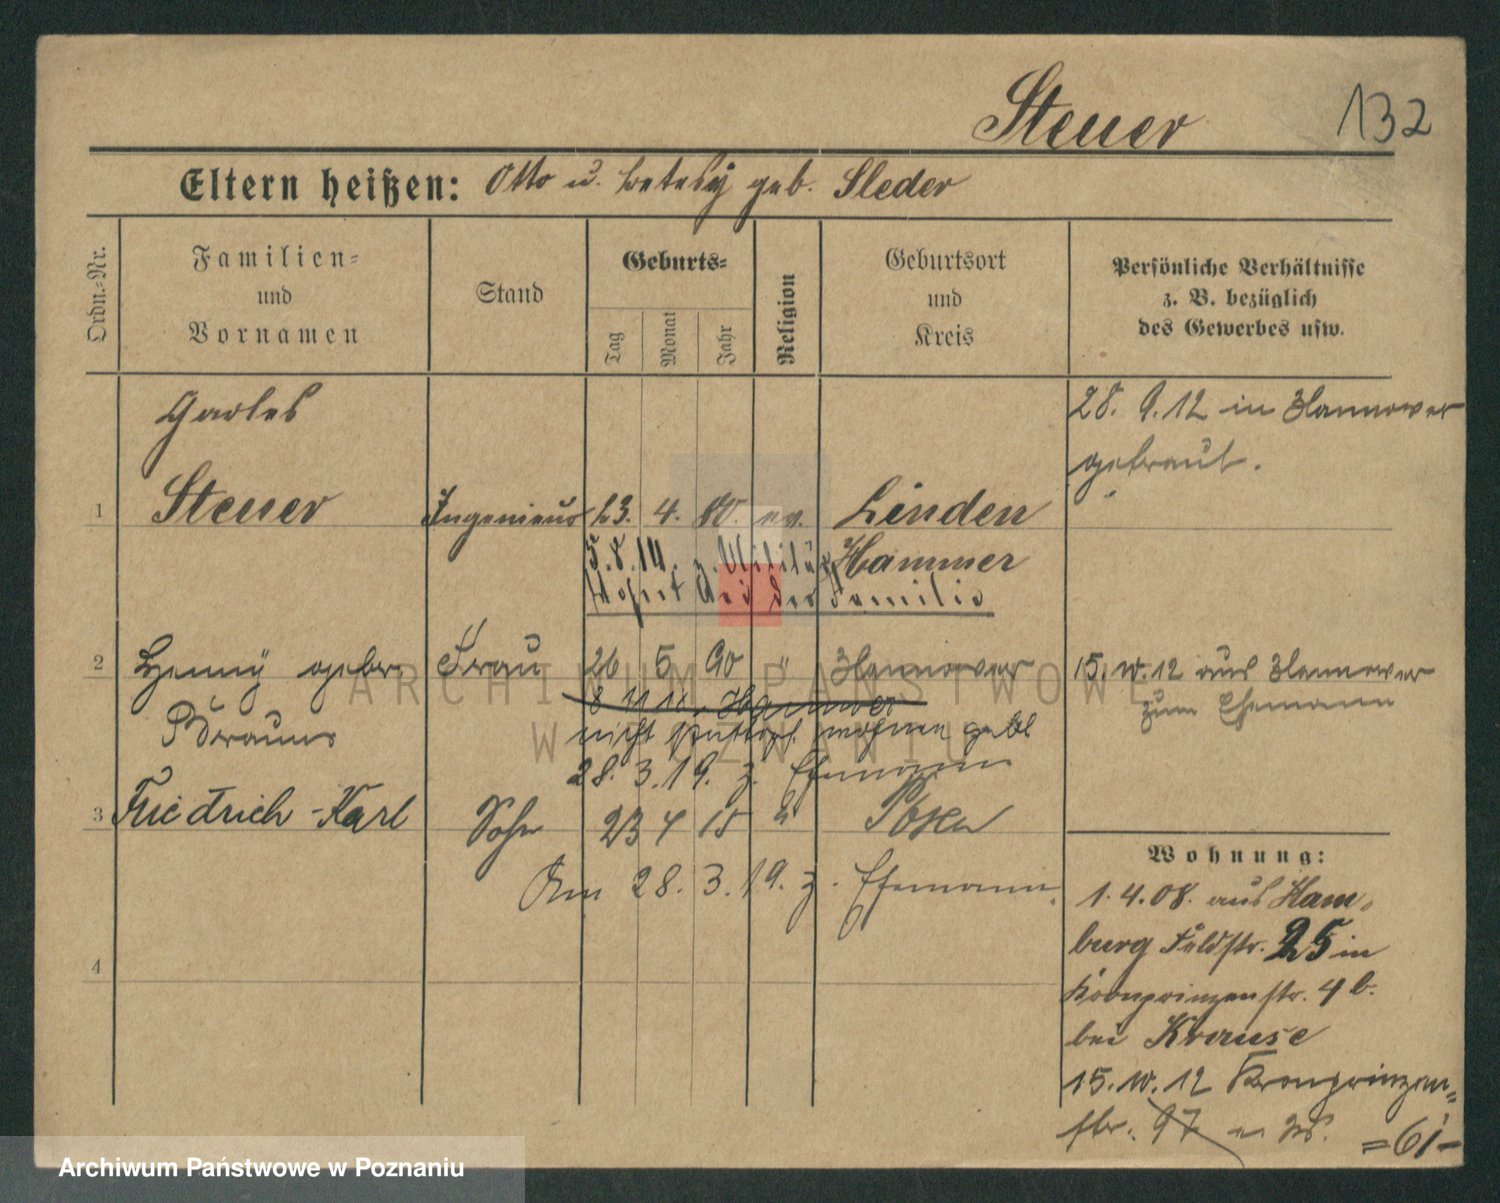 Steuer 132
Eltern heißen: Otto u. geb. Sleder
Ordn.-Nr.
Familien-
und
Vornamen
Stand
Geburts-
Tag
Monat
Jahr
Religion
Geburtsort
und
Kreis
Persönliche Verhältnisse
z. B. bezüglich
des Gewerbes usw.
28. 9. 12 in Hannover
getraut.
1 Steuer Ingenieur 23. 4. 80. ev. Linden
5.8.14. z. Militär Hammer
Wohnt bei der Familie
2 Henny gebr. Frau 26 5 90 " Hannover
Brauns
15. 10. 12 aus Hannover
zum Ehemann
8 11 18. Hannover
nicht gebl
28. 3. 19. z. Ehemann
3 Friedrich-Karl Sohn 23 4 15 " Posen
Am 28. 3. 19. z. Ehemann.
4
Wohnung:
1. 4. 08. aus Ham-
burg Feldstr. 25 in
Kronprinzenstr. 4 b.
bei Krause
15. 10. 12 Kronprinzen-
str. 97 =61-
ARCHIWUM PAŃSTWOWE
W POZNANIU
Archiwum Państwowe w Poznaniu